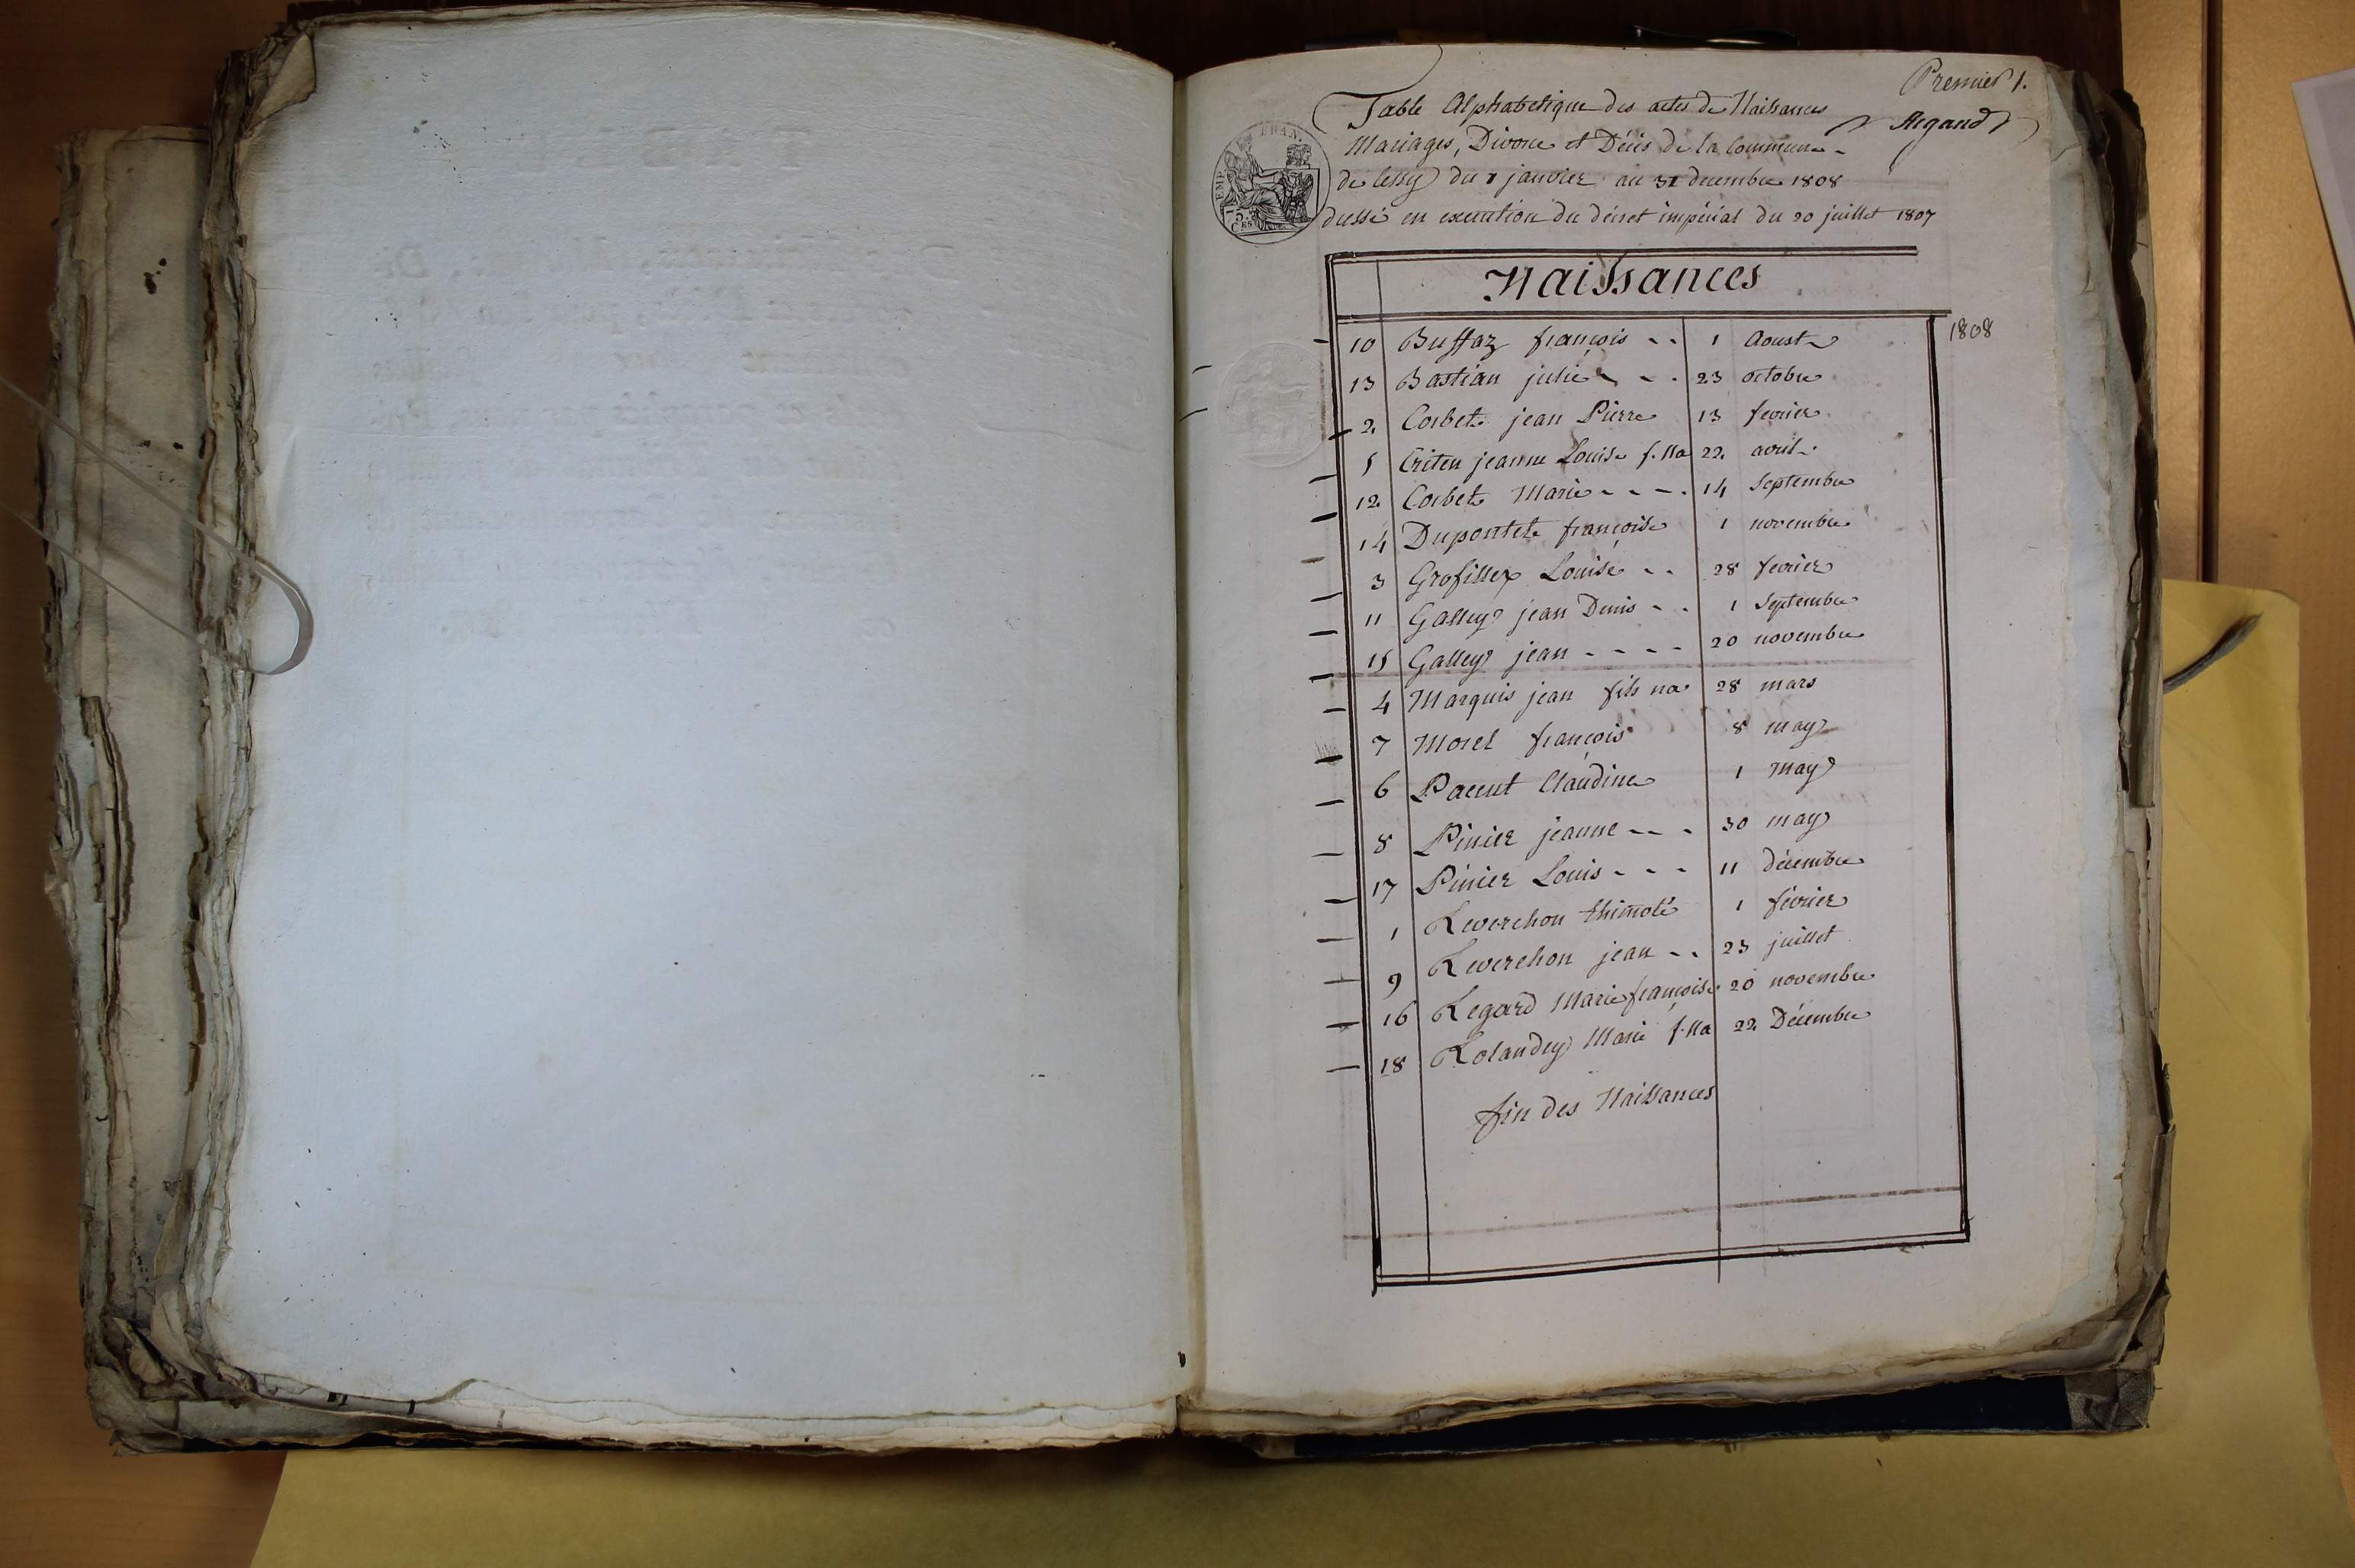 Premier 1.
Table Alphabetique des actes de Naissances
Argand
Mariages, Divorce et Décés de la Commune
de Lessy du 1 janvier au 31 decembre 1808
dressé en execution du décret impérial du 20 juillet 1807
EMP FRAN.
75.
CES
Naissances
1808
10 Buffaz françois - - 1 Aoust
13 Bastian julie - - 23 octobre
2 Corbet jean Pierre 13 fevrier
5 Criten jeanne Louise f. na 22 avril
12 Corbet Marie - - - - 14 Septembre
14 Dupontet françoise 1 novembre
3 Grosillex Louise - - 28 fevrier
11 Galley jean Denis - - 1 Septembre
15 Galley jean - - - - 20 novembre
4 Marquis jean fils na 28 mars
7 Morel françois 8 may
6 Paccut Claudine 1 May
8 Pinier jeanne - - - 30 may
17 Pinier Louis - - - 11 décembre
1 Reverchon thimoté 1 février
9 Reverchon jean - - 23 juillet
16 Regard Marie françoise 20 novembre
18 Rolandey Marie f. na 22 Décembre
fin des Naissances